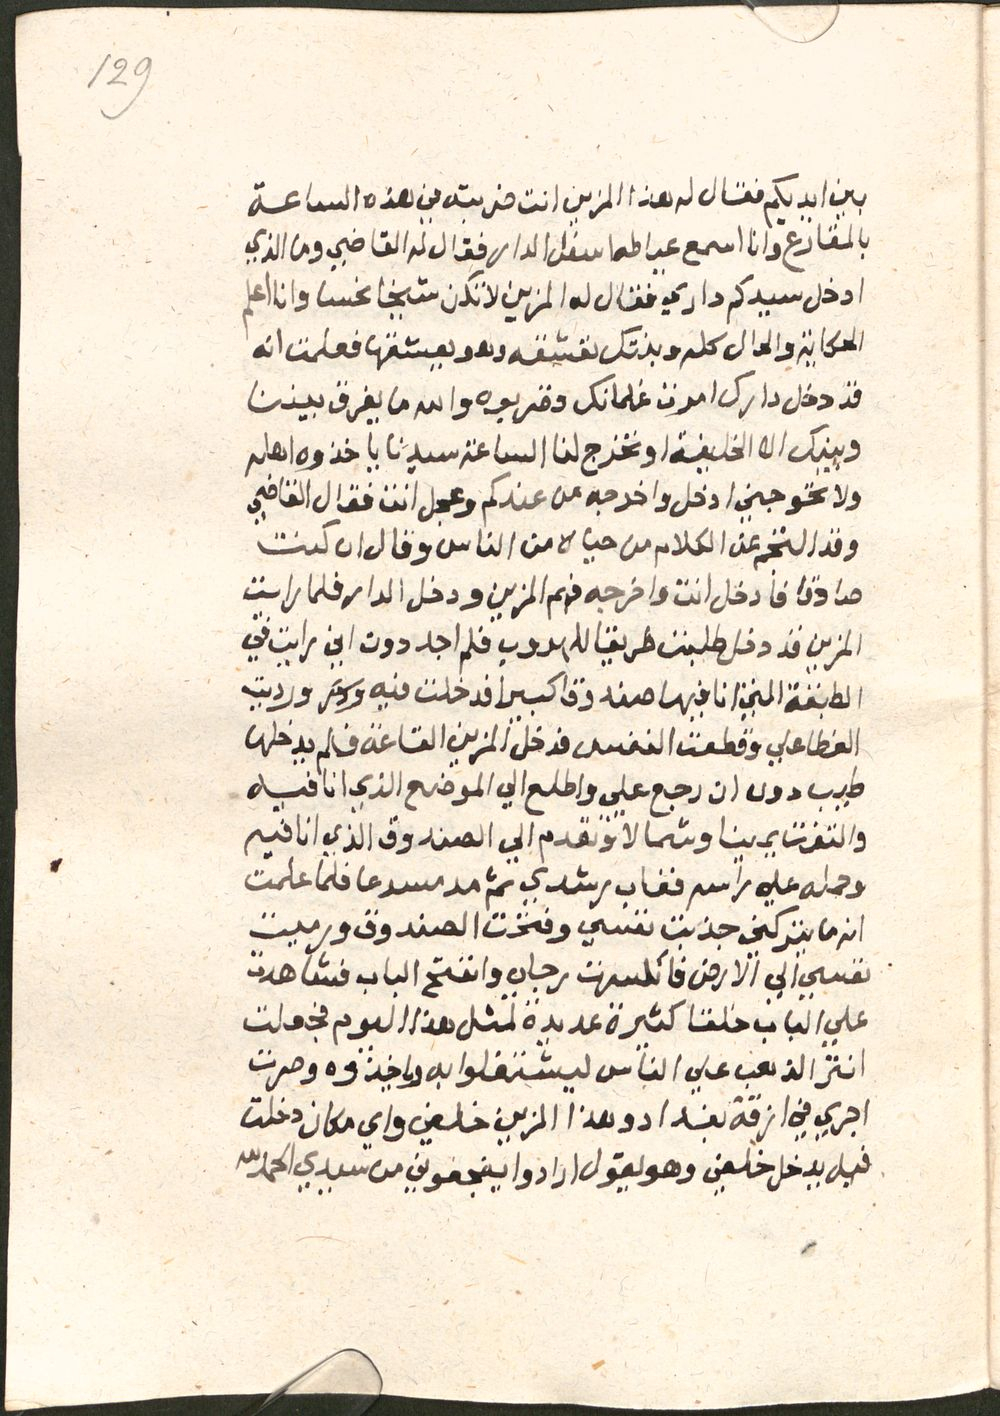 129
بين ايديكم فقال له هذا المزين انت ضربته من هذه الساعة
بالمقارع وانا اسمع عياطه اسفل الدار فقال له القاضي وما الذي
ادخل سيدكم داري فقال له المزين لا تكن شيخا نحسا وانا اعلم
الحكاية والحال كله وبنتك تعشقه وهو يعشقها فعلمت انه
قد دخل دارك امرت غلمانك وضربوه والله ما يفرق بيننا
وبينك الا الخليفة او تخرج لنا الساعة سيدنا ياخذوه اهله
ولا تحوجني ادخل واخرجه من عندكم وعجل انت فقال القاضي
وقد التجم عن الكلام من حياه من الناس وقال ان كنت
صادقا فادخل انت واخرجه فهم المزين ودخل الدار فلما رايت
المزين قد دخل طلبت طريقا للهروب فلم اجد دون اني رايت في
الطبقة التي انا فيها صندوقا كبيرا فدخلت فيه ورديت
الغطا علي وقطعت النفس فدخل المزين القاعة فلم يدخلها
طيب دون ان رجع علي واطلع الي الموضع الذي انا فيه
والتفت يمينا وشمالا وتقدم الي الصندوق الذي انا فيه
وحمله علي راسه فغاب رشدي ثم مر مسرعا فلما علمت
انه ما يتركني جذبت نفسي وفتحت الصندوق ورميت
نفسي الي الارض فانكسرت رجلي وانفتح الباب فشاهدت
علي الباب خلقا كثيرة عديدة لمثل هذا اليوم فجعلت
انثر الذهب علي الناس ليشتغلوا به وياخذوه وصرت
اجري في ازقة بغداد وهذا المزين خلفي واي مكان دخلت
فيه يدخل خلفي وهو يقول ارادوا يفجعوني من سيدي الحمد لله